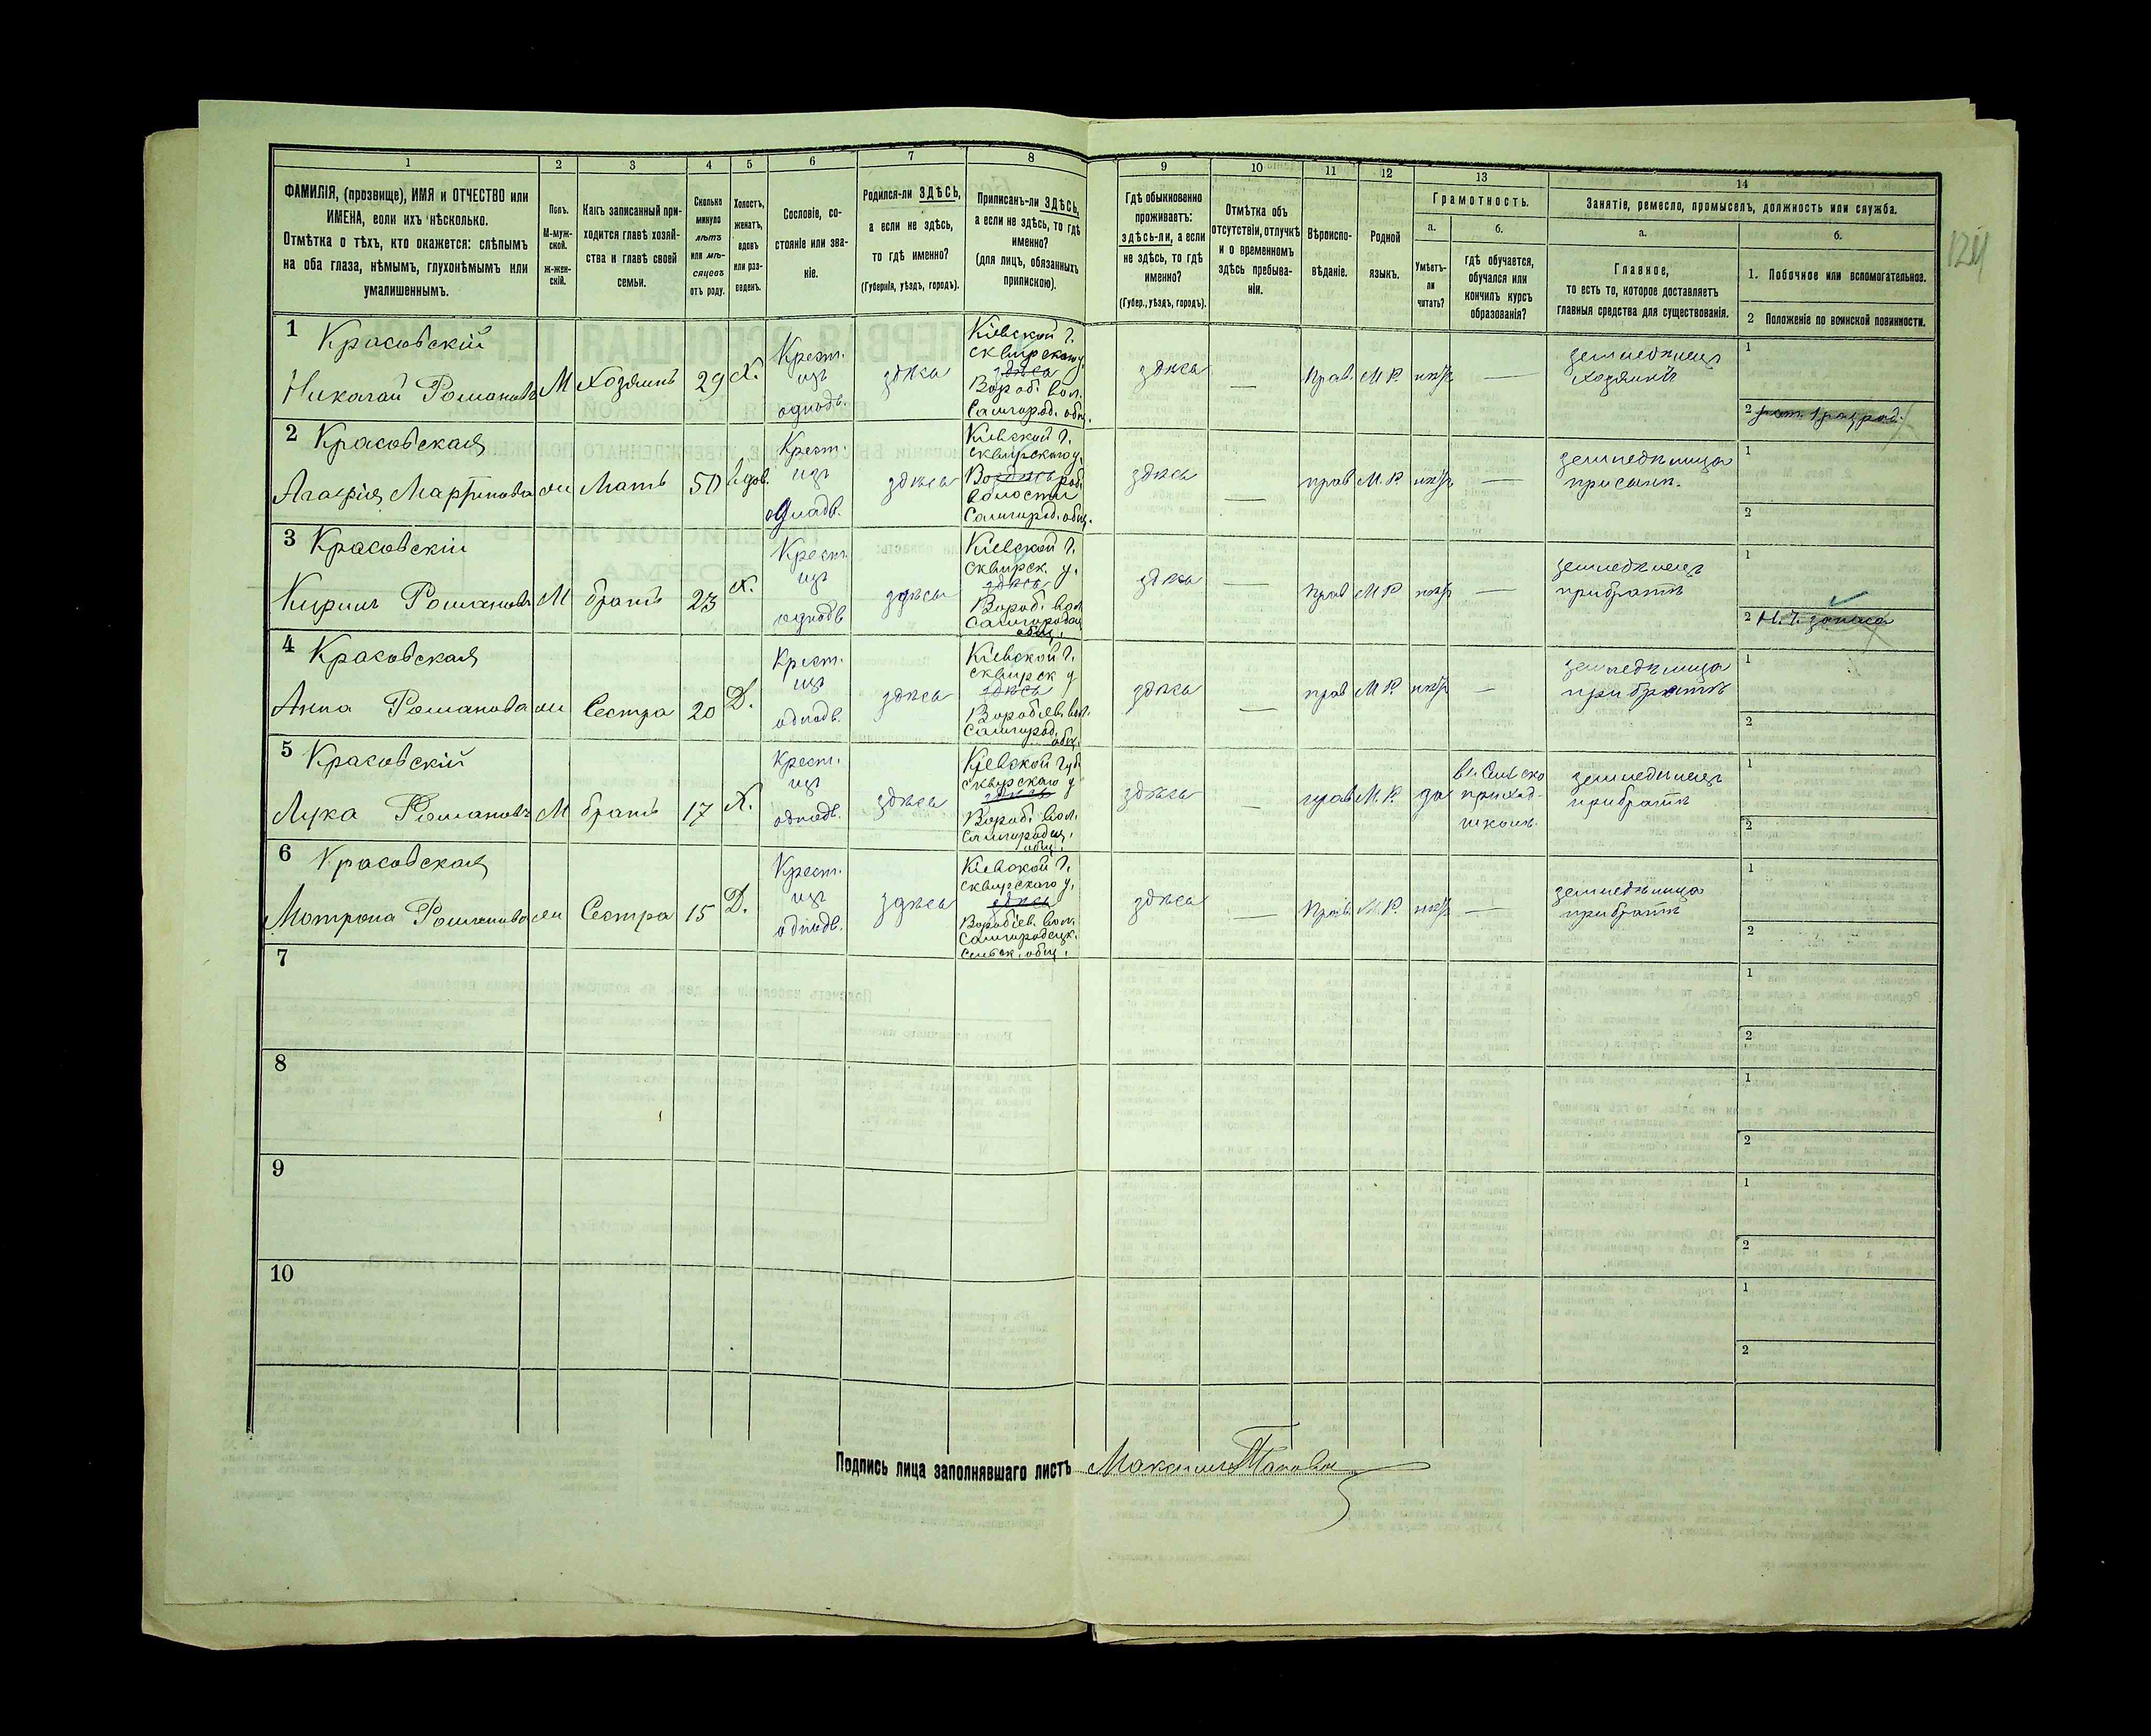 1 2 3 4 5 6 7 8 9 10 11 12 13 14
ФАМИЛІЯ, (прозвище), ИМЯ и ОТЧЕСТВО или
ИМЕНА, если ихъ нѣсколько.
Отмѣтка о тѣхъ, кто окажется: слѣпымъ
на оба глаза, нѣмымъ, глухонѣмымъ или
умалишеннымъ.
Полъ.
М-муж-
ской.
ж-жен-
скій.
Какъ записанный при-
ходится главѣ хозяй-
ства и главѣ своей
семьи.
Сколько
минуло
лѣтъ
или мѣ-
сяцевъ
отъ роду.
Холостъ,
женатъ,
вдовъ
или раз-
веденъ.
Сословіе, со-
стояніе или зва-
ніе.
Родился-ли ЗДѢСЬ,
а если не здѣсь,
то гдѣ именно?
(Губернія, уѣздъ, городъ).
Приписанъ-ли ЗДѢСЬ,
а если не здѣсь, то гдѣ
именно?
(для лицъ, обязанныхъ
припискою).
Гдѣ обыкновенно
проживаетъ:
здѣсь-ли, а если
не здѣсь, то гдѣ
именно?
(Губер., уѣздъ, городъ).
Отмѣтка объ
отсутствіи, отлучкѣ
и о временномъ
здѣсь пребыва-
ніи.
Вѣроиспо-
вѣданіе.
Родной
языкъ.
Грамотность.
а.
Умѣетъ-
ли
читать?
б.
гдѣ обучается,
обучался или
кончилъ курсъ
образованія?
Занятіе, ремесло, промыселъ, должность или служба.
а.
Главное,
то есть то, которое доставляетъ
главныя средства для существованія.
б.
1. Побочное или вспомогательное.
2 Положеніе по воинской повинности.
1 Красовскій
Николай Романовъ
М
Хозяинъ
29
Х.
Крест.
изъ
однодв.
здѣсь
Кіевской г.
сквирскаго у.
здѣсь
Вороб. вол.
Самгород. общ.
здѣсь
—
Прав.
М.Р.
нѣтъ
—
земледѣлецъ
хозяинъ
1
2
2 Красовская
Агафія Мартинова
ж
Мать
50
вдов.
Крест.
изъ
однодв.
здѣсь
Кіевской г.
сквирскаго у.
Вороб.
волости
Самгород. общ.
здѣсь
—
прав
М.Р.
нѣтъ
—
земледѣлица
при сынѣ.
1
2
3 Красовскій
Кирилъ Романовъ
М
братъ
23
х.
Крест.
изъ
однодв
здѣсь
Кіевской г.
сквирск. у.
здѣсь
Вороб. вол.
Самгородец.
общ.
здѣсь
—
прав
М.Р.
нѣтъ
—
земледѣлецъ
при братѣ
1
2
4 Красовская
Анна Романова
ж
Сестра
20
Д.
Крест.
изъ
однодв.
здѣсь
Кіевской г.
сквирск у
здѣсь
Воробіев. вол.
Самгород.
общ.
здѣсь
—
прав
М.Р.
нѣтъ
—
земледѣлица
при братѣ
1
2
5 Красовскій
Лука Романовъ
М
братъ
17
Х.
Крест.
изъ
однодв.
здѣсь
Кіевской губ.
сквирскаго у
здѣсь
Вороб. вол.
Самгородец.
общ.
здѣсь
—
прав
М.Р.
да
приход.
школѣ.
земледѣлецъ
при братѣ
1
2
6 Красовская
Мотрона Романова
ж
Сестра
15
Д.
Крест.
изъ
однодв.
здѣсь
Кіевской г.
сквирскаго у.
здѣсь
Воробіев. вол.
Самгородецк.
сельск. общ.
здѣсь
—
Прав.
М.Р.
нѣтъ
—
земледѣлица
при братѣ
1
2
7
1
2
8
1
2
9
1
2
10
1
2
Подпись лица заполнявшаго листъ